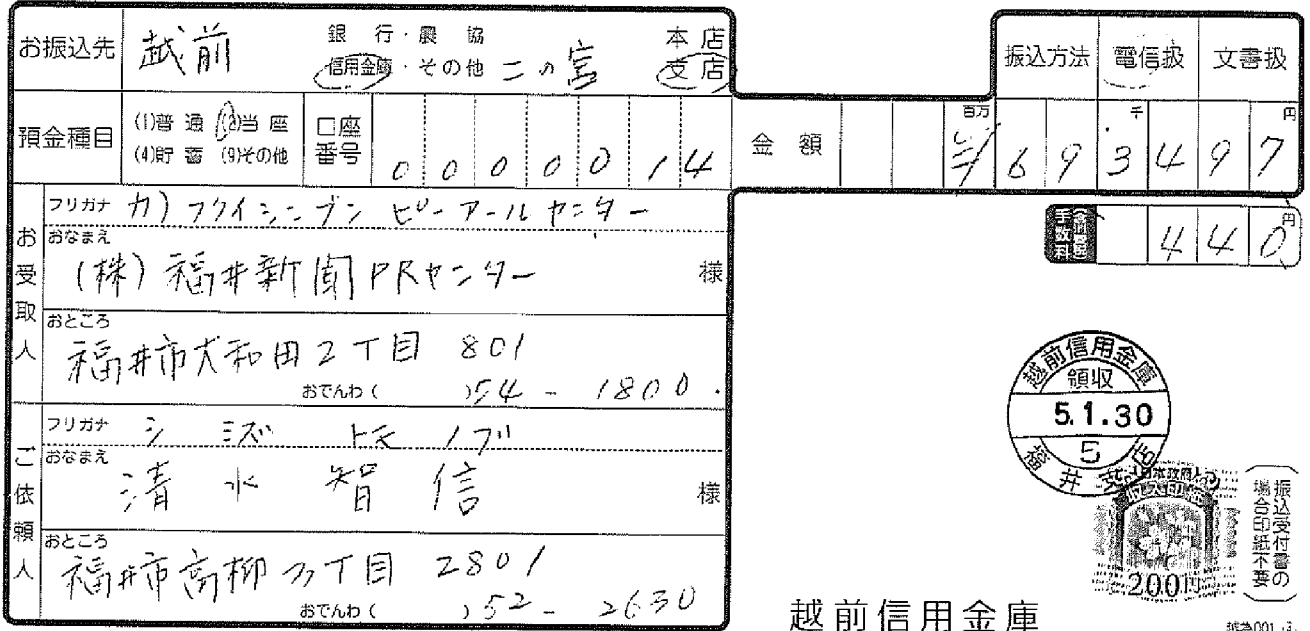 お振込先 越前 銀行・農協 信用金庫・その他 二の宮 本店 支店 振込方法 電信扱 文書扱
預金種目 (1)普通 (2)当座 (4)貯蓄 (9)その他 口座番号 0000014 金額 百万 千 円 ¥693497
お受取人
フリガナ カ)フクイシンブン ピーアールセンター
手数料 440円
おなまえ (株)福井新聞PRセンター 様
おところ 福井市大和田2丁目 801
おでんわ( )54-1800
ご依頼人
フリガナ シミズ トモノブ
おなまえ 清水智信 様
おところ 福井市高柳3丁目 2801
おでんわ( )52-2630
越前信用金庫
領収
5.1.30
5
福井支店
日本政府
収入印紙
200円
振込受付書の場合印紙不要
越前信用金庫